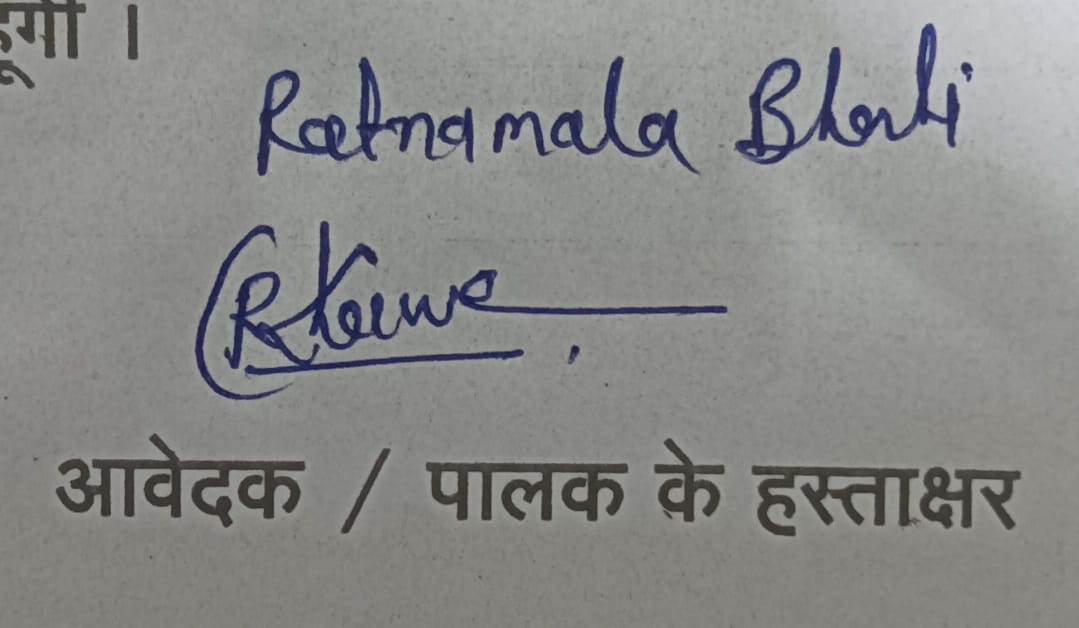 हूंगी ।
Ratnamala Bharti
आवेदक / पालक के हस्ताक्षर